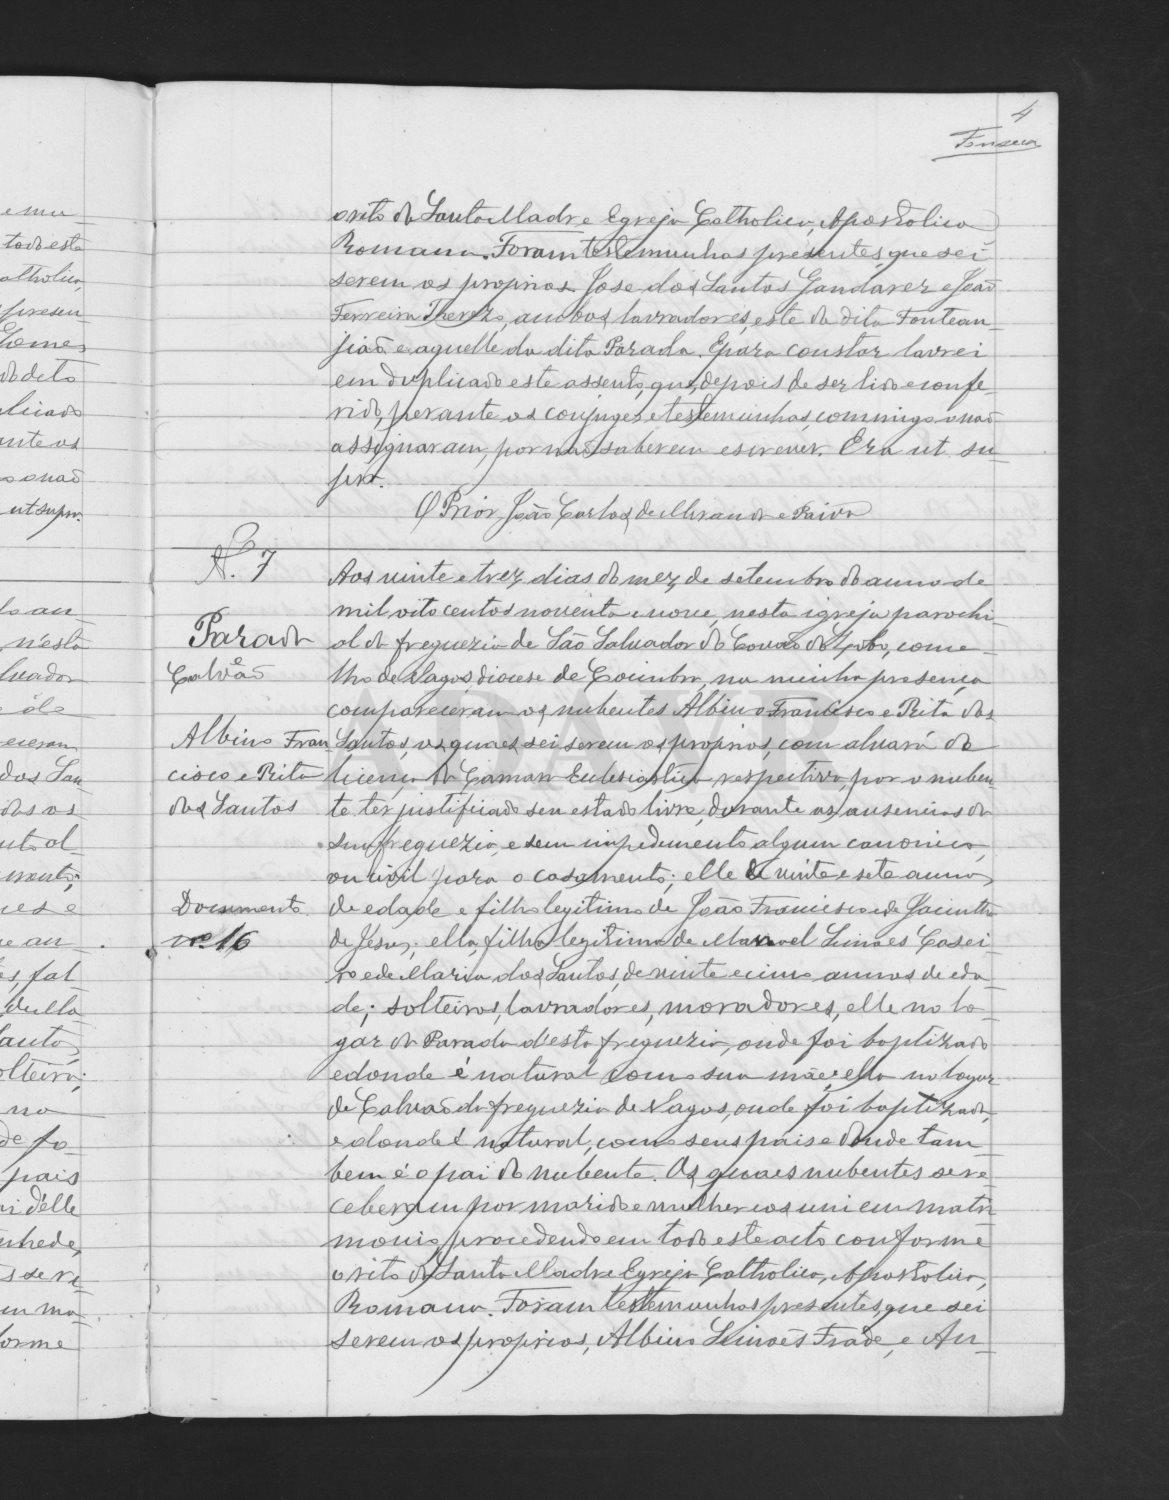 4
Fonseca
o rito da Santa Madre Egreja Catholica, Apostolica
Romana. Foram testemunhas presentes, que sei
serem os proprios Jose dos Santos Gandarez e João
Ferreira Therezo, ambos lavradores, este da dita Fontean-
jião e aquelle da dita Parada. E para constar lavrei
em duplicado este assento, que, depois de ser lido e confe-
rido, perante os conjuges e testemunhas, commigo o não
assignaram, por não saberem escrever. Era ut su-
pra.
O Prior, João Carlos de Miranda e Paiva
Nº. 7
Parada
e
Calvão
Albino Fran
cisco e Rita
dos Santos
Documento
nº 16
Aos vinte e trez dias do mez de setembro do anno de
mil oito centos noventa e nove, nesta igreja parochi-
al da freguezia de São Salvador do Covão do Lobo, conce-
lho de Vagos, diocese de Coimbra, na minha presença
compareceram os nubentes Albino Francisco e Rita dos
Santos, os quaes sei serem os proprios, com alvará de
licença da Camara Eclesiastica respectiva, por o nuben-
te ter justificado seu estado livre, durante as ausencias da
sua freguezia, e sem impedimento algum canonico,
ou civil para o casamento; elle de vinte e sete annos
de edade e filho legitimo de João Francisco e de Jacintha
de Jesus; ella, filha legitima de Manoel Simoes Casei-
ro e de Maria dos Santos, de vinte e cinco annos de eda-
de; solteiros, lavradores, moradores, elle no lo-
gar da Parada d'esta freguezia, onde foi baptizado
e donde é natural como sua mãe; ella no logar
de Calvão da freguezia de Vagos, onde foi baptizada,
e donde é natural, como seus pais e donde tam
bem é o pai do nubente. Os quaes nubentes se re-
ceberam por marido e mulher e os uni em matri
monio, procedendo em todo este acto conforme
o rito da Santa Madre Egreja Catholica, Apostolica,
Romana. Foram testemunhas presentes, que sei
serem os proprios, Albino Simoes Frade, e An-